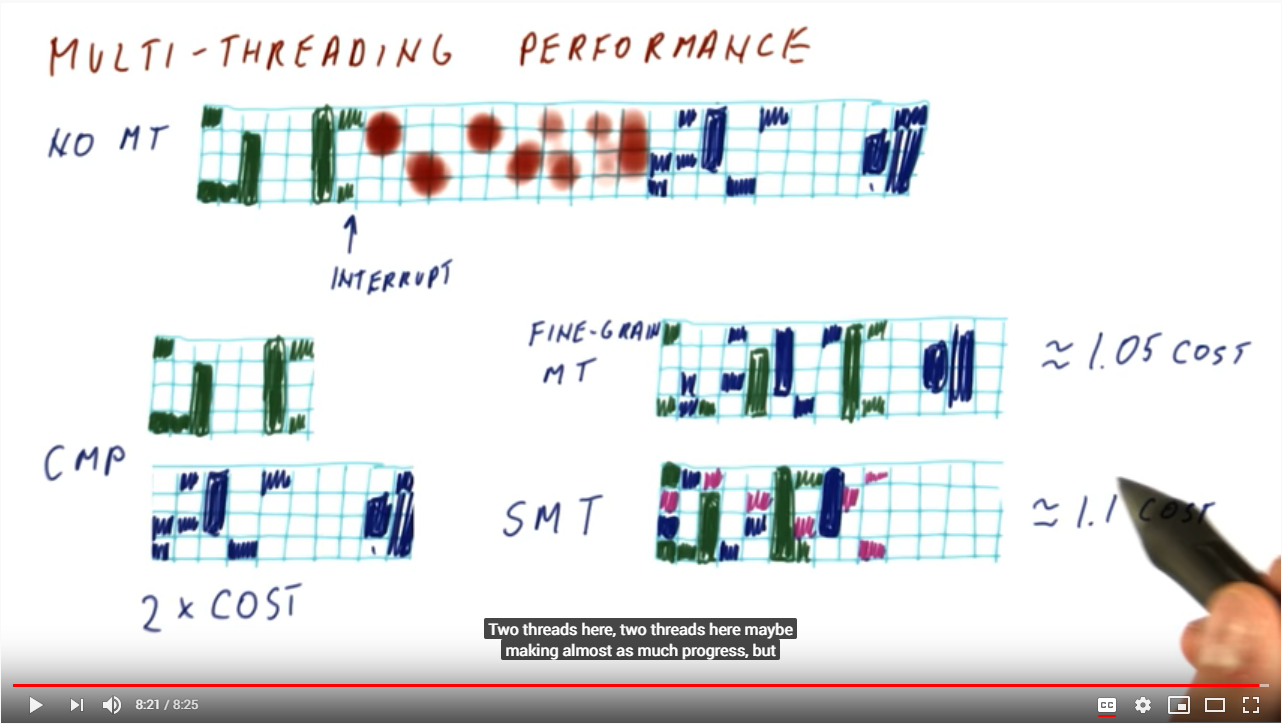 MULTI-THREADING PERFORMANCE
NO MT
INTERRUPT
FINE-GRAIN
MT
≈ 1.05 COST
CMP
SMT
≈ 1.1 COST
2 x COST
Two threads here, two threads here maybe
making almost as much progress, but
8:21 / 8:25
CC